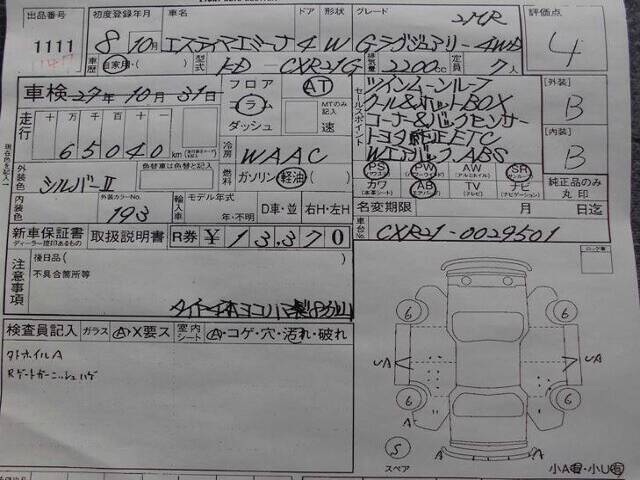 出品番号 初度登録年月 車名 ドア 形状 グレード 評価点
1111 8年10月 エスティマエミーナ 4 W Gラグジュアリー 4WD 4
車歴 自家用・( ) 型式 KD - CXR21G 排気量 2200cc 定員 7人
車検 27年10月31日 フロア コラム ダッシュ AT MTのみ記入 速
セールスポイント
ツインムーンルーフ
クール&ホットBOX
コーナー&バックセンサー
トヨタ純正ETC
Wエアバック、ABS
[外装] B
[内装] B
走行 十万千百十 65040 km
冷房 WAAC
外装色 シルバーII 色替車は色替と記入 燃料 ガソリン 軽油 ( )
PS PW AW SR
カワ AB TV ナビ
純正品のみ丸印
内装色 外装カラーNo. 193 輸入車 モデル年式 年・不明 D車・並 右H・左H
名変期限 月 日迄
新車保証書 取扱説明書 R券 ¥ 13,370
ディーラー捺印あるもの
車台No. CXR21-0029501
注意事項 後日品( )
不具合箇所等
ロック電
検査員記入 ガラス A・X要ス 室内シート A・コゲ・穴・汚れ・破れ
タトホイルA
Rゲートガーニッシュハゲ
6 6
UA UA
6 6
A A
S
スペア
A A
小A有・小U有